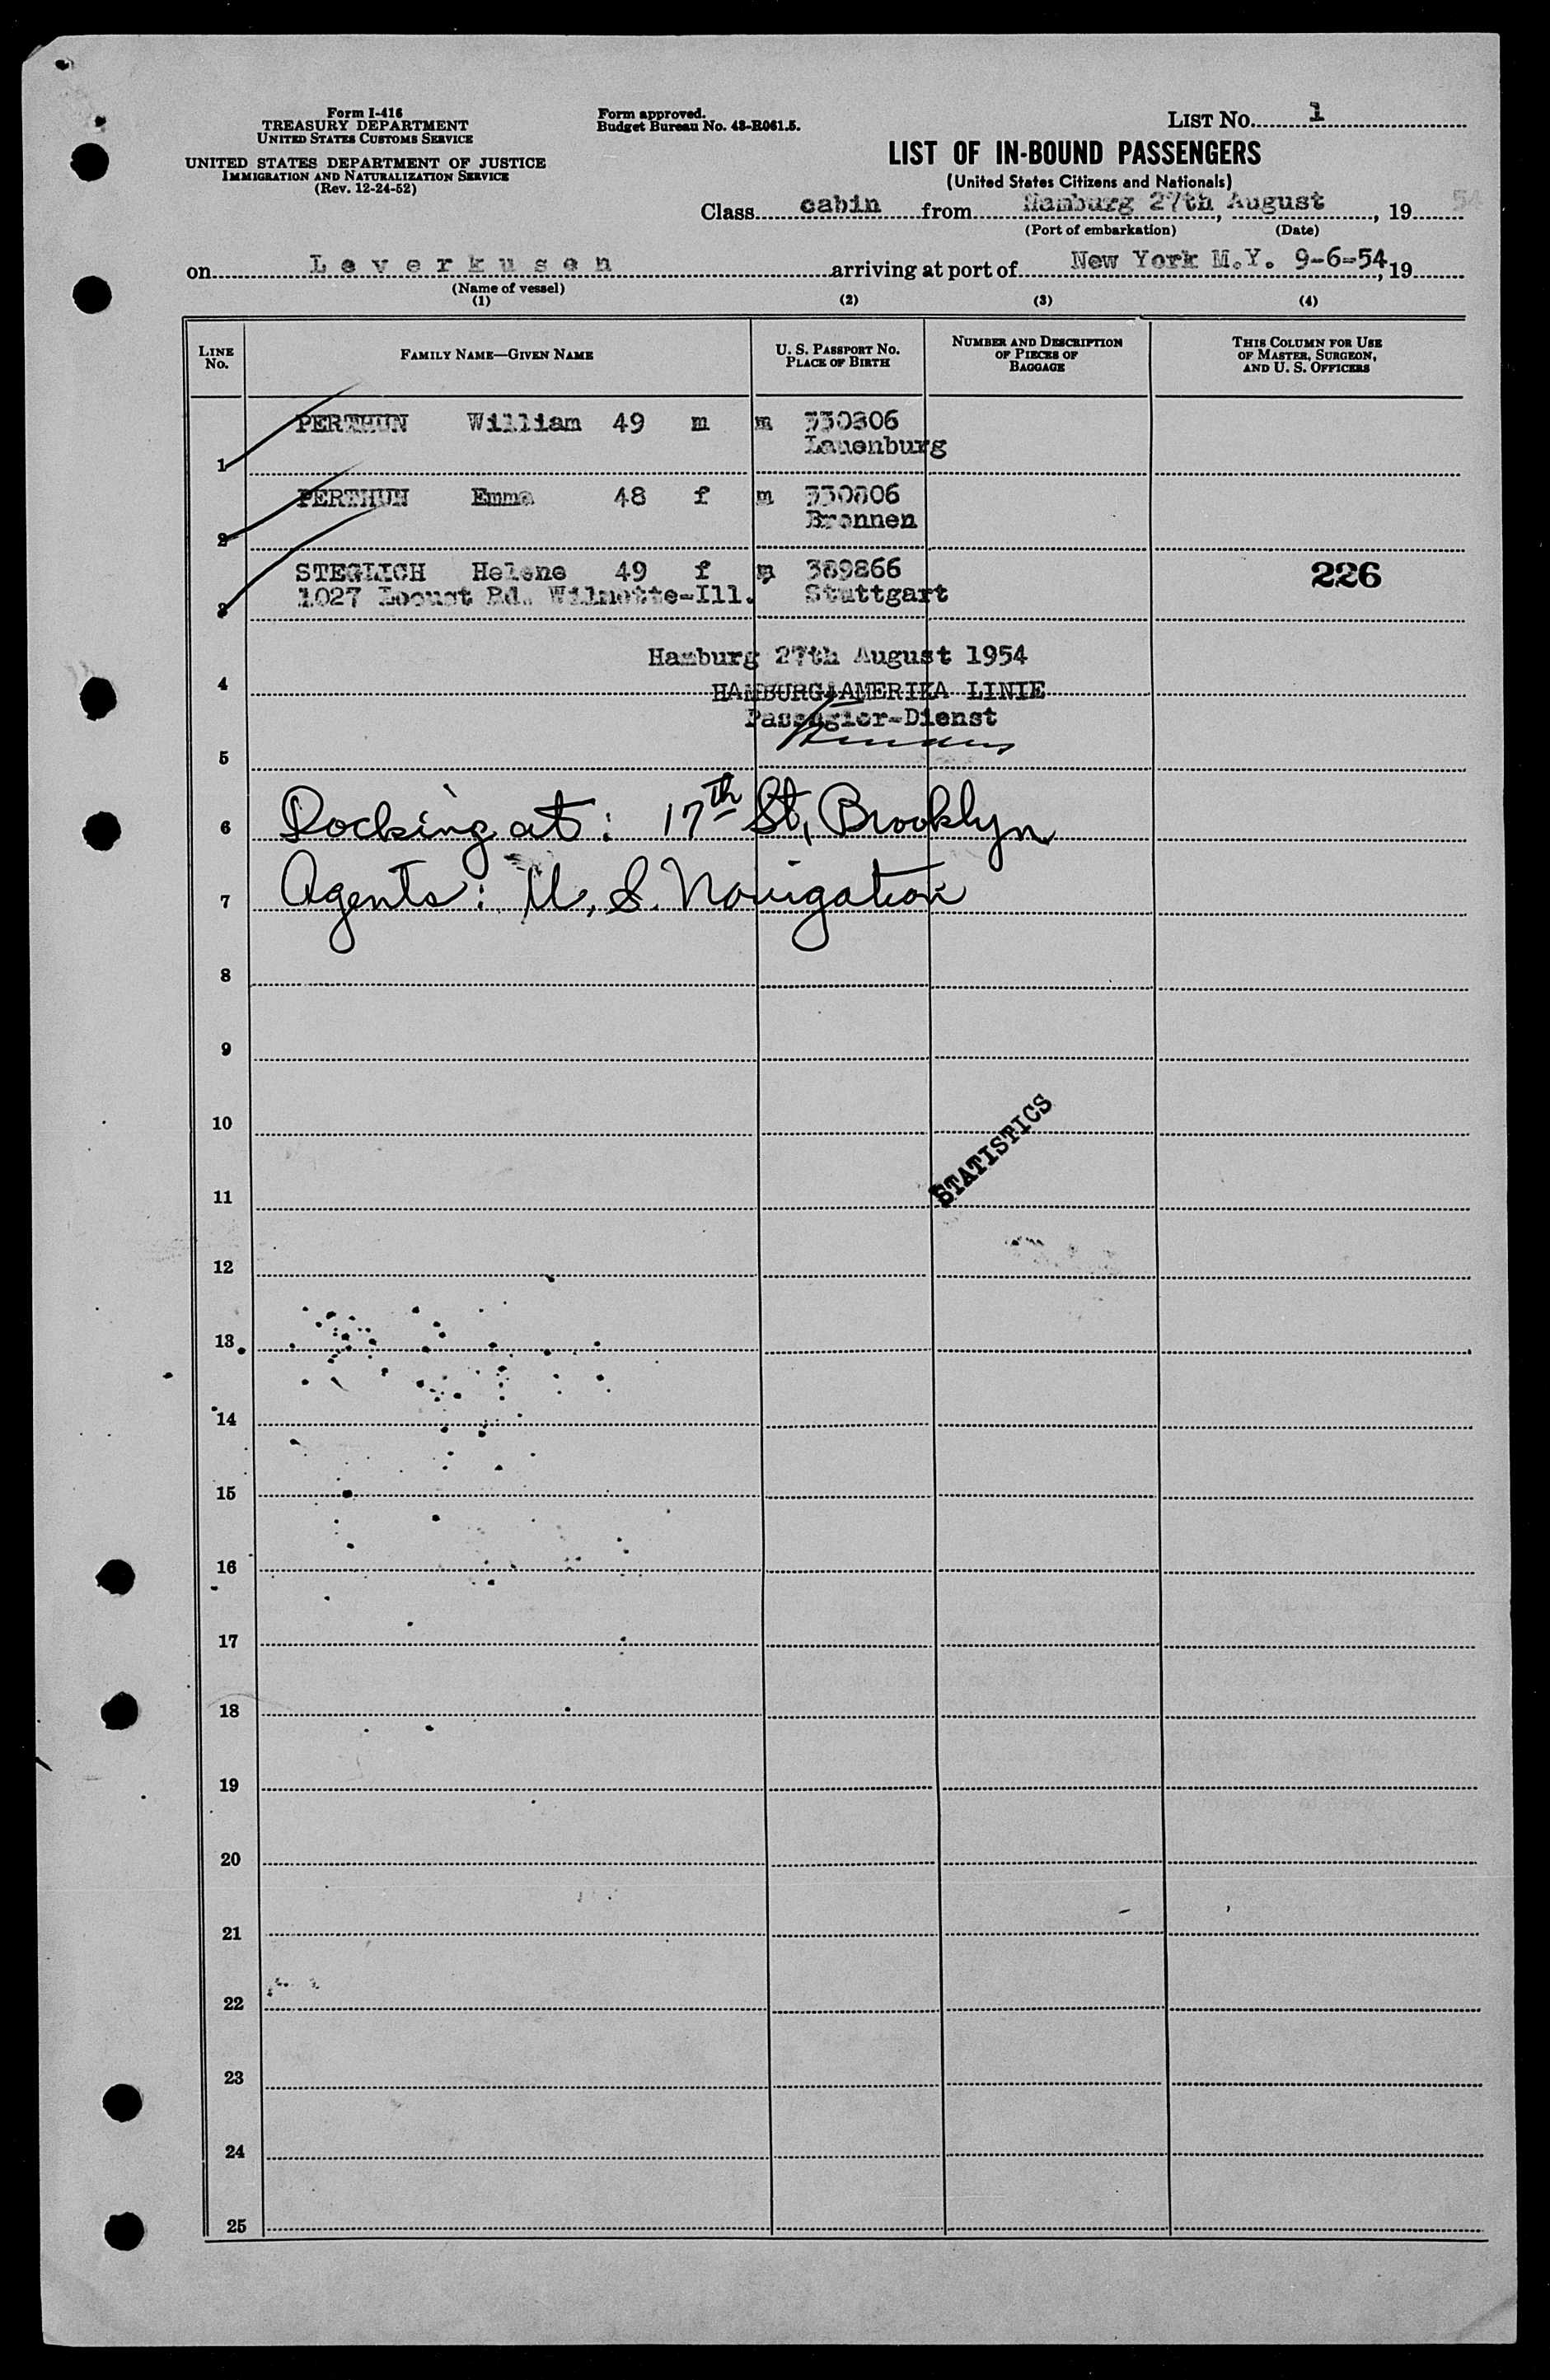 Form I-416
TREASURY DEPARTMENT
UNITED STATES CUSTOMS SERVICE
UNITED STATES DEPARTMENT OF JUSTICE
IMMIGRATION AND NATURALIZATION SERVICE
(Rev. 12-24-52)
Form approved.
Budget Bureau No. 43-R061.5.
LIST No. 1
LIST OF IN-BOUND PASSENGERS
(United States Citizens and Nationals)
Class cabin from Hamburg 27th, August, 19 54
(Port of embarkation) (Date)
on Leverkusen arriving at port of New York N.Y. 9-6-54, 19
(Name of vessel)
(1) (2) (3) (4)
LINE No. FAMILY NAME—GIVEN NAME U. S. PASSPORT No. PLACE OF BIRTH NUMBER AND DESCRIPTION OF PIECES OF BAGGAGE THIS COLUMN FOR USE OF MASTER, SURGEON, AND U. S. OFFICERS
PERTHUN William 49 m m 330806
Lauenburg
1
PERTHUN Emma 48 f m 330806
Bronnen
2
STEGLICH Helene 49 f m 389866 226
1027 Locust Rd. Wilmette-Ill. Stuttgart
3
Hamburg 27th August 1954
4 HAMBURG-AMERIKA LINIE
Passagier-Dienst
5
6 Docking at: 17th St, Brooklyn
7 Agents: U. S. Navigation
8
9
10
STATISTICS
11
12
13
14
15
16
17
18
19
20
21
22
23
24
25